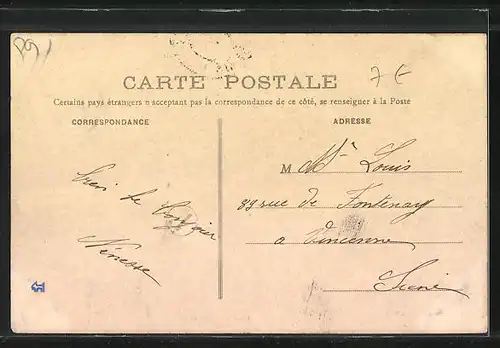 7 €
CARTE POSTALE
Certains pays étrangers n'acceptant pas la correspondance de ce côté, se renseigner à la Poste
CORRESPONDANCE
ADRESSE
M Mr Louis
83 rue de Fontenay
a Vincenne
Seine
Ninesse